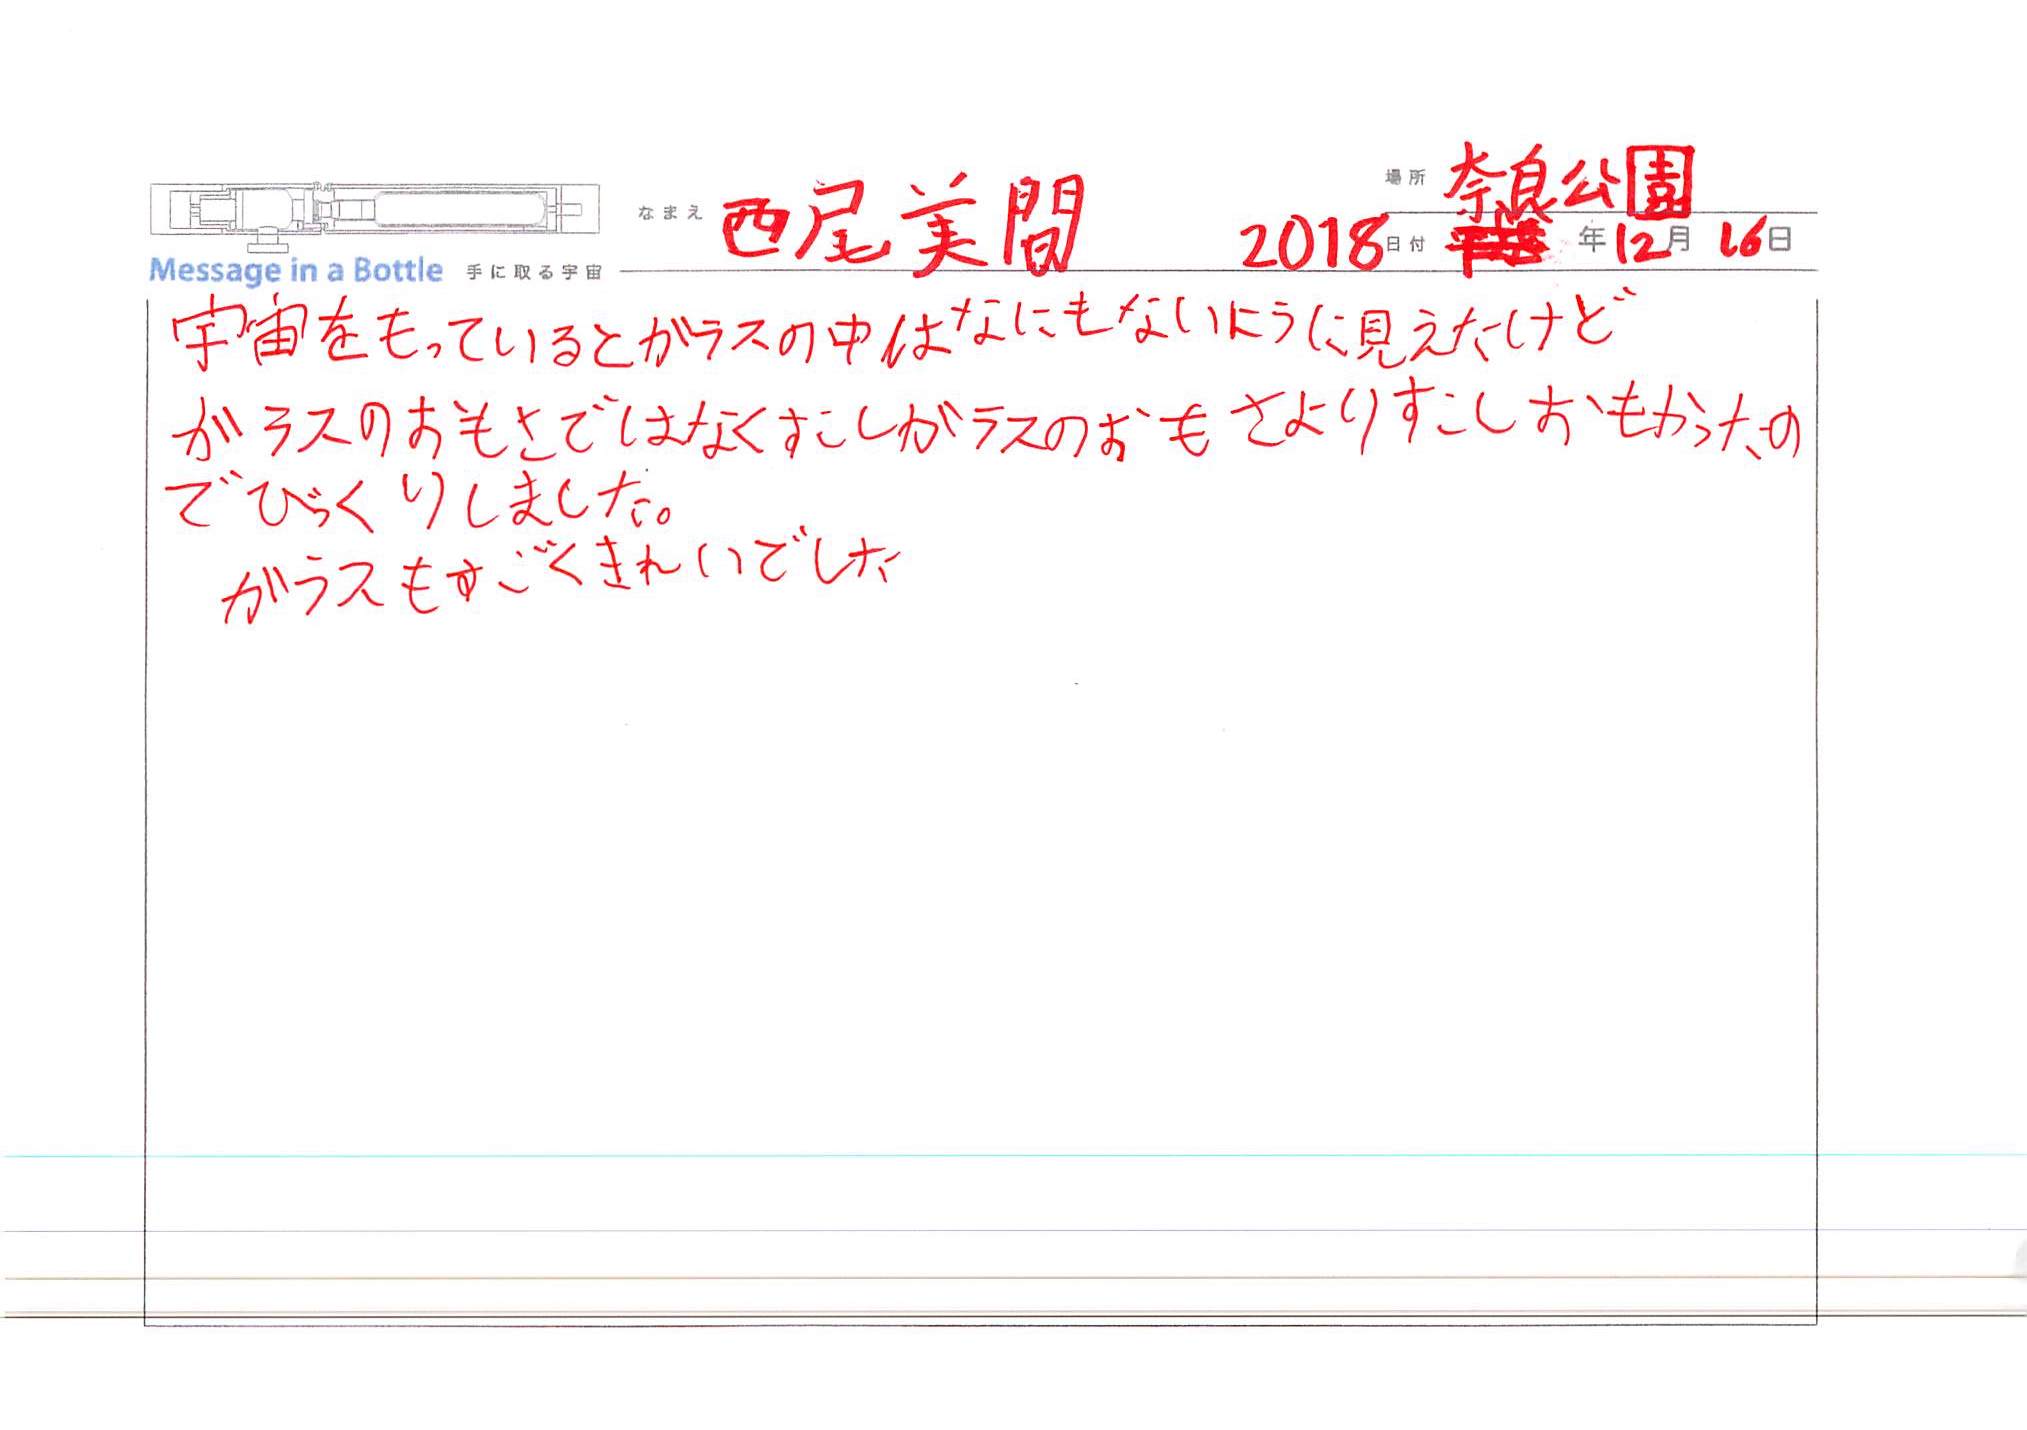 場所 奈良公園
なまえ 西尾美間
2018 日付 年 12月 16日
Message in a Bottle 手に取る宇宙
宇宙をもっているとガラスの中はなにもないように見えたけど
ガラスのおもさではなくすこしガラスのおもさよりすこしおもかったの
でびっくりしました。
ガラスもすごくきれいでした